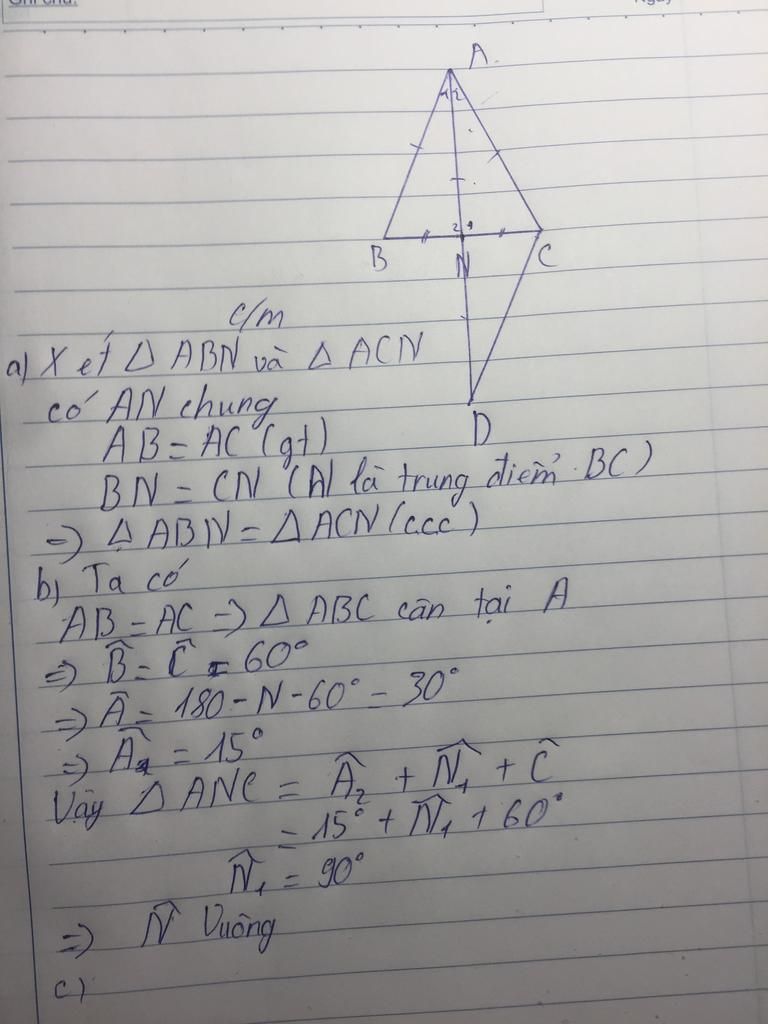 Ghi chú:
Ngày
A
1 2
B
2 1
N
C
D
c/m
a) Xét Δ ABN và Δ ACN
có AN chung
AB = AC (gt)
BN = CN (A là trung điểm BC)
=> Δ ABN = Δ ACN (ccc)
b) Ta có
AB = AC => Δ ABC cân tại A
=> B̂ = Ĉ = 60°
=> Â = 180 - N - 60° = 30°
=> Â₁ = 15°
Vậy Δ ANC = Â₂ + N̂₁ + Ĉ
= 15° + N̂₁ + 60°
N̂₁ = 90°
=> N̂ Vuông
c)